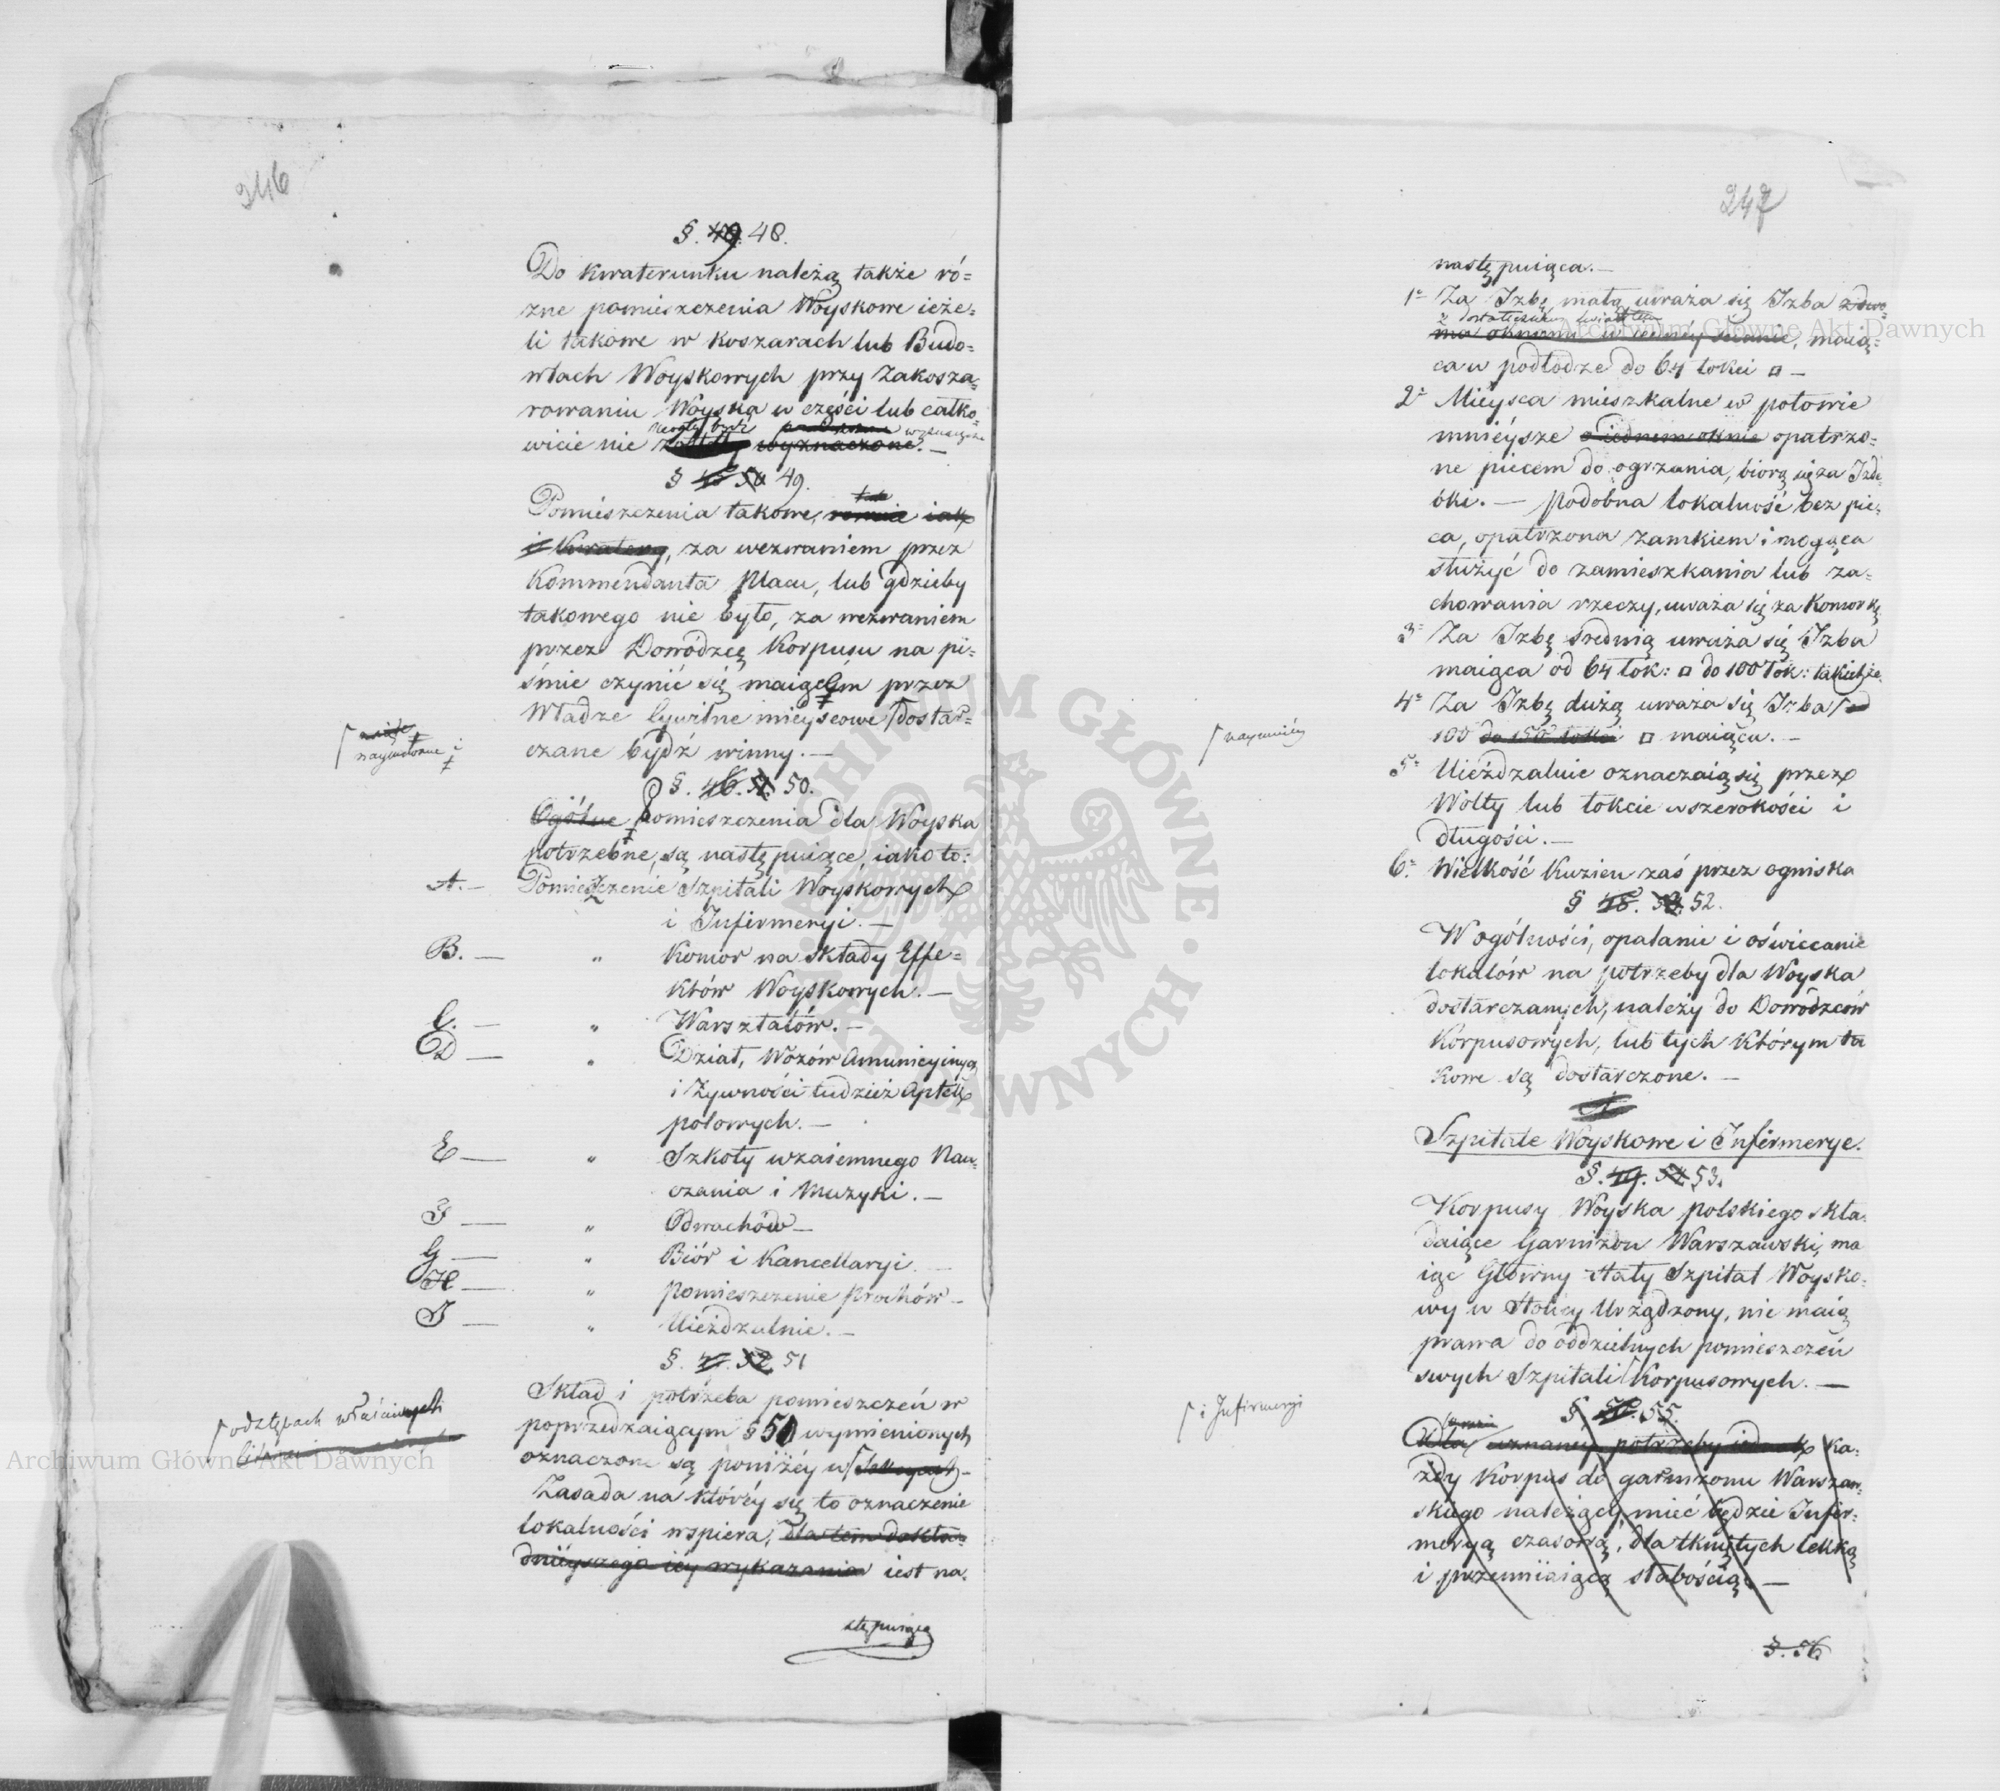 246
§. 49. 48.
Do kwaterunku należą także ró=
żne pomieszczenia Woyskowe ieże=
li takowe w koszarach lub Budo=
wlach Woyskowych przy zakosza=
rowaniu Woyska w części lub całko
mogły bydź wyznaczone
wicie nie zostały wyznaczone. —
§ 50 49.
tak
Pomieszczenia takowe, równie iak
i Kwatery, za wezwaniem przez
Kommendanta Placu, lub gdzieby
takowego nie było, za wezwaniem
przez Dowódzcę Korpusu na pi=
śmie czynić się maiącém przez
Władze Cywilne mieyscowe dostar=
naymowane i
czane bydź winny. —
§. 46. 51. 50.
Ogólne Pomieszczenia dla Woyska
potrzebne, są następuiące, iako to:
A. — Pomieszczenie Szpitali Woyskowych
i Infirmeryi. —
B. — " Komor na składy Effe=
któw Woyskowych. —
C. — " Warsztatów. —
D — " Dział, Wozów Amunicyinych
i Żywności tudzież Aptek
polowych. —
E — " Szkoły wzaiemnego Nau=
czania i Muzyki. —
F — " Odwachów —
G — " Biór i Kancellaryi. —
H — " Pomieszczenie Prochów —
I — " Uieżdzalnie. —
§. 52 51
Skład i potrzeba pomieszczeń w
poprzedzaiącym § 50 wymienionych
odstępach właściwych
oznaczone są poniżéy w —
Zasada na któréy się to oznaczenie
lokalności wspiera, dla tem dokła=
dnieyszego iéy wykazania iest na=
stępuiąca
247
następuiąca. —
1° Za Izbę małą uważa się Izba z dwo=
z dostatecznym światłem
ma oknami w iednéy ścianie, maią=
ca w podłodze do 64 łokci □ —
2° Mieysca mieszkalne w połowie
mnieysze o iednem oknie opatrzo=
ne piecem do ogrzania, biorą się za Izde=
bki. — Podobna lokalność bez pie=
ca, opatrzona zamkiem i mogąca
służyć do zamieszkania lub za=
chowania rzeczy, uważa się za Komorkę
3° Za Izbę średnią uważa się Izba
maiąca od 64 łok: □ do 100 łok: takichże.
4° Za Izbę dużą uważa się Izba od
naymniéy
100 do 150 łokci □ maiąca. —
5° Uieżdzalnie oznaczaią się przez
Wolty lub łokcie w szerokości i
długości. —
6° Wielkość Kuzien zaś przez ogniska
§ 48. 53. 52.
W ogólności, opalanie i oświecanie
lokalów na potrzeby dla Woyska
dostarczanych, należy do Dowódzców
Korpusowych, lub tych którym ta
kowe są dostarczone. —
A
Szpitale Woyskowe i Infirmerye.
§. 49. 54. 53.
Korpusy Woyska polskiego skła=
daiące Garnizon Warszawski, ma
iąc Główny stały Szpital Woysko=
wy w stolicy Urządzony, nie maią
prawa do oddzielnych pomieszczeń
swych Szpitali Korpusowych. —
i Infirmeryi
§ 50. 55.
Dla uznanéy potrzeby iednak ka=
żdy Korpus do garnizonu Warszaw=
skiego należący mieć będzie Infir=
meryą czasową, dla tkniętych lekką
i przemiiaiącą słabością. —
§. 56
Archiwum Główne Akt Dawnych
Archiwum Główne Akt Dawnych
ARCHIWUM GŁÓWNE AKT DAWNYCH